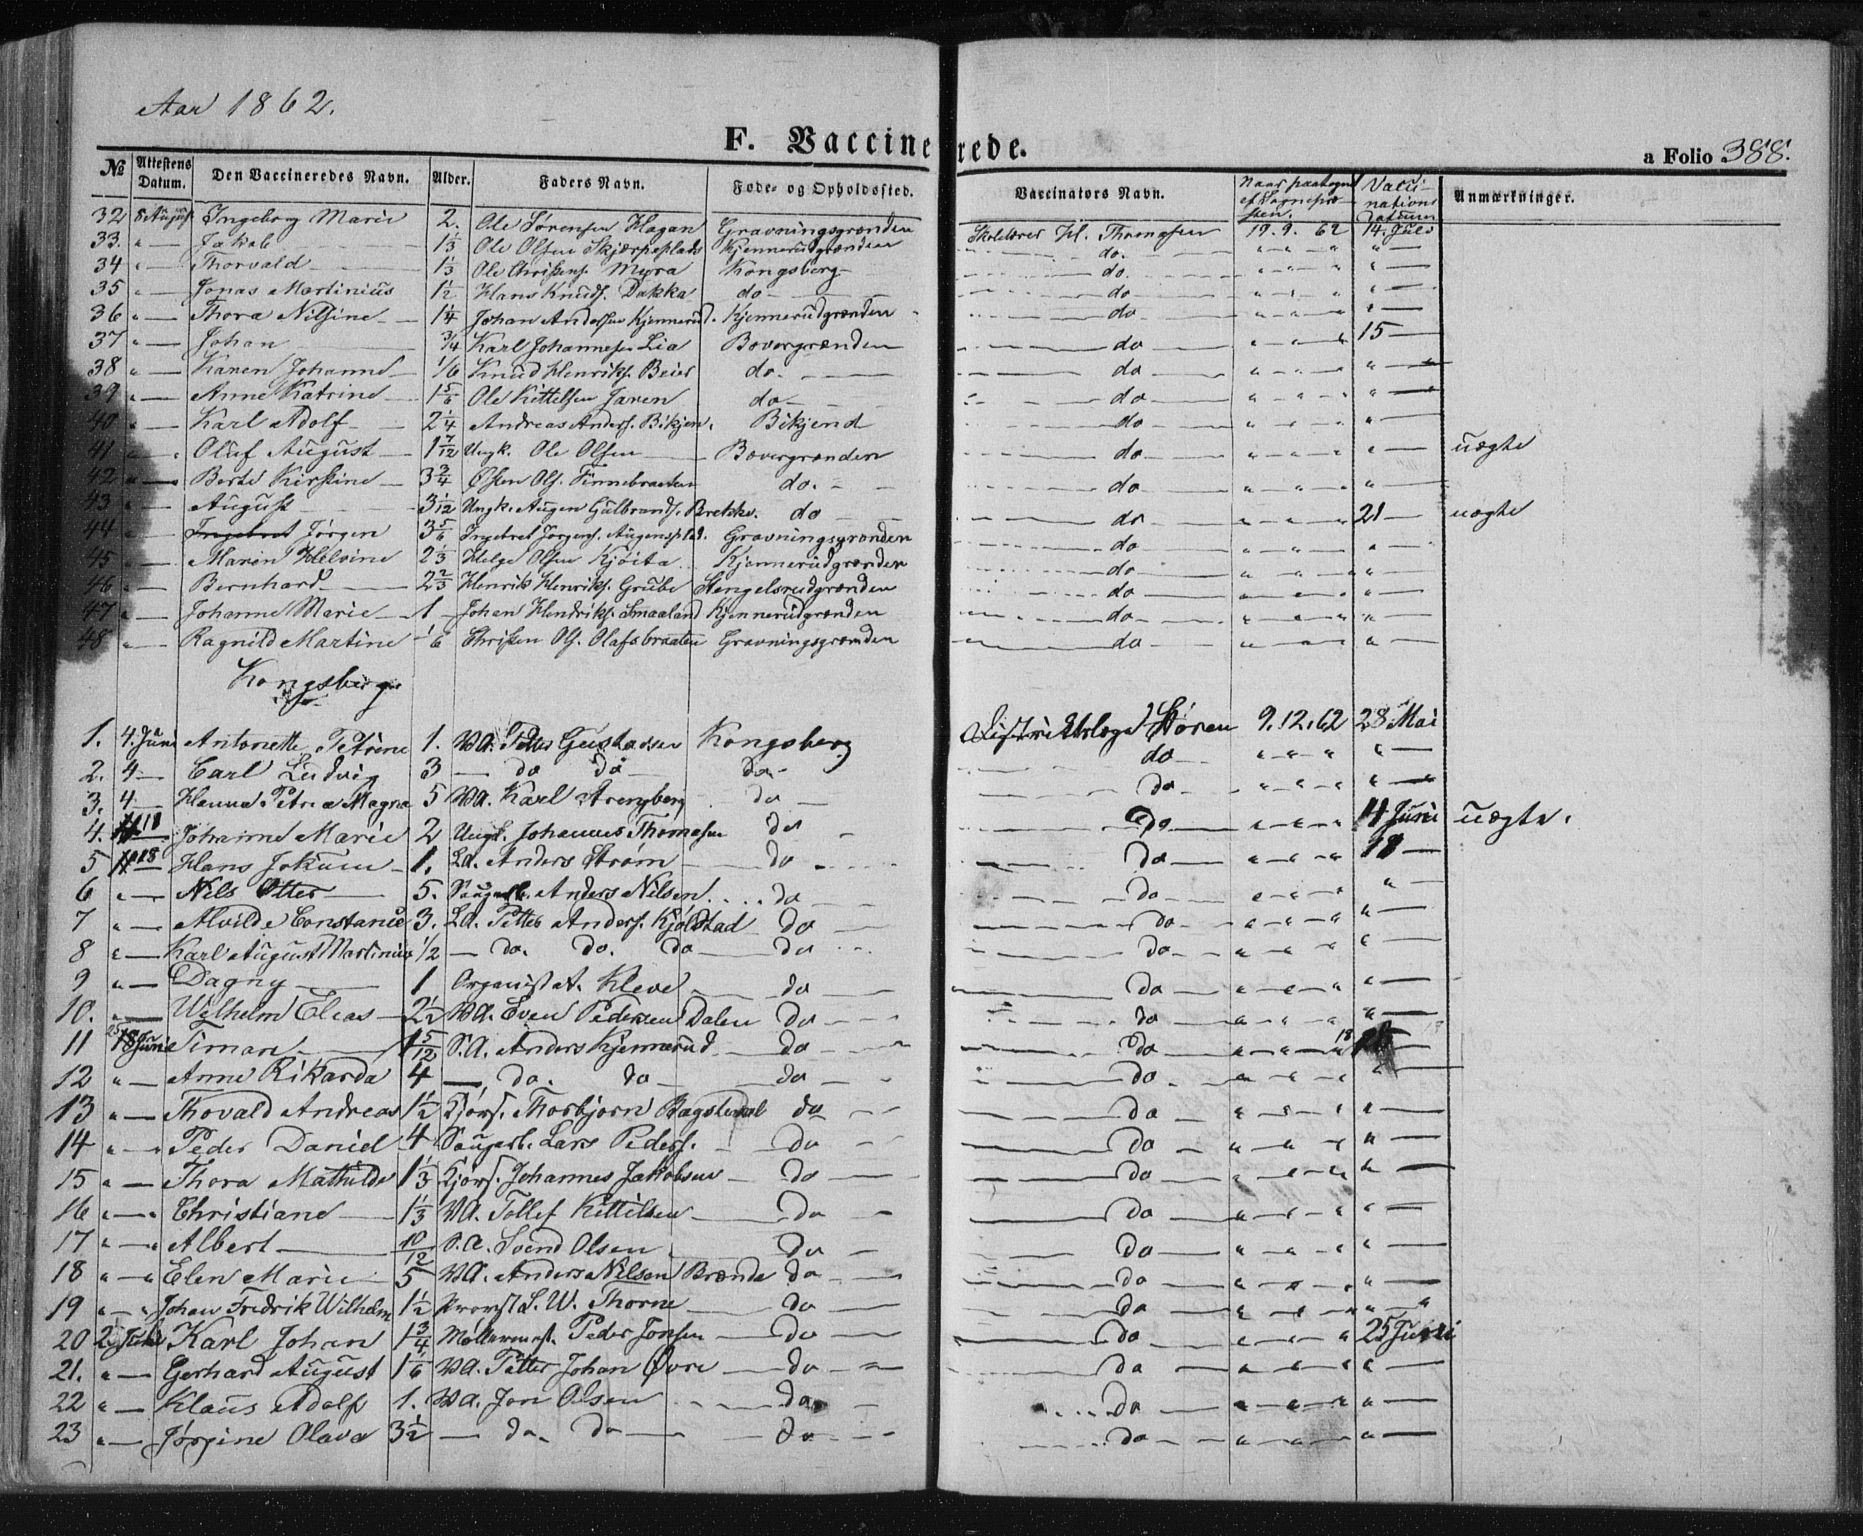 Aar 1862.
F. Vaccinerede.
a Folio 388.
№ Attestens Datum. Den Vaccineredes Navn. Alder. Faders Navn. Føde- og Opholdssted. Vaccinators Navn. Naar paategnet af Sognepræsten. Vaccinations Datum Anmærkninger.
32 8 August Ingeborg Marie 2. Ole Sørensen Hagan Gravningsgrænden Skolelærer H. Thomasen 19. 9. 62 14. Juli
33. " — Jakob 1 1/3 Ole Olsen Skjærpeplads Kjennerudgrænden do. " " " " —
34 " — Thorvald 1 1/3 Ole Christens. Myra Kongsberg do " " " " —
35 " — Jonas Martinius 1 1/2 Hans Knuds. Bakka do do " " " " —
36 " — Thora Nilsine 1 1/4 Johan Andersen Kjennerud. Kjennerudgrænden do " " " " —
37 " — Johan 3/4 Karl Johannesen Lia Bævergrænden do " " " 15 —
38 " — Karen Johanne 1/6 Knud Henriks. Beier do. do " " " " —
39 " — Anne Katrine 1 5/6 Ole Kittelsen Jaren do do " " " " —
40 " — Karl Adolf 2 1/4 Andreas Anders. Bikjen. Bikjend do " " " " —
41 " — Oluf August 1 7/12 Ungk. Ole Olsen Bævergrænden do " " " " — uægte
42 " — Berte Kirstine 3 3/4 Osten Ols. Finnebraaten do. do " " " " —
43 " — August 3 1/12 Ungk. Augen Gulbrands. Brekke. do do " " " 21 — uægte
44 " — Ingebret Jørgen 3 5/6 Ingebret Jørgens. Augenspld. Gravningsgrænden do " " " " —
45 " — Maren Helvine 2 1/3 Helge Olsen Kjøita Kjennerudgrænden do " " " " —
46 " — Bernhard 2 2/3 Henrik Henriks. Grube Stengelsrudgrænden do " " " " —
47 " — Johanne Marie 1 Johan Hendriks. Smaaland Kjennerudgrænden do " " " " —
48 " — Ragnild Martine 1/6 Christen Ols. Olafsbraaten Gravningsgrænden do " " " " —
Kongsberg
1. 4. Juni Antonette Petrine 1. BA. Petter Gustavsen Kongsberg Distriktslæge Støren 9. 12. 62 28 Mai
2. 4 — Carl Ludvig 3 — do do do do " " " " —
3. 4 — Hanna Petrea Magna 5 BA. Karl Strengberg do do " " " " —
4. 18 — Johanne Marie 2 Ungk. Johannes Thomasen do do " " " 11 Juni uægte.
5 18 — Hans Jokum 1. La. Anders Strøm do do " " " 18 —
6 " — Nils Otter 5. Saugarb. Anders Nilsen do do " " " " —
7 " — Alvilde Constance 3. La. Petter Anders. Kjølstad do do " " " " —
8 " — Karl August Martinius 1/2 — do. do. do do do " " " " —
9 " — Dagny 1 Organist A. Kleve do do " " " " —
10. " — Wilhelm Elias 2 1/2 BA. Even Pedersen Dalen do do " " " " —
11 25 Juni Timan 1 5/12 S.A. Anders Kjennerud do do " " " 18 —
12 " — Anne Rikarda 4 — do. do do do " " " " —
13 " — Thovald Andreas 1 1/2 Kjørs. Thorbjørn Bagstevol do do " " " " —
14 " — Peder Daniel 4 Saugarb. Lars Peders. do do " " " " —
15 " — Thora Mathilde 1 1/3 Kjørs. Johannes Jakobsen do do " " " " —
16 " — Christiane 1 1/3 BA. Tollef Kittilsen do do " " " " —
17 " — Albert 10/12 S.A. Svend Olsen do do " " " " —
18 " — Elen Marie 5 BA. Anders Nilsen Brænde do do " " " " —
19 " — Johan Fredrik Wilhelm 1 1/2 Provst L. W. Thorne do do " " " " —
20 2 Juli Karl Johan 1 3/4 Møllermest. Peder Jonsen do do " " " 25 Juni
21. " — Gerhard August 1 1/6 BA. Petter Johan Øvre do do " " " " —
22 " — Klaus Adolf 1. BA. Jon Olsen do do " " " " —
23 " — Jørgine Olava 3 1/2 — do. do do do " " " " —